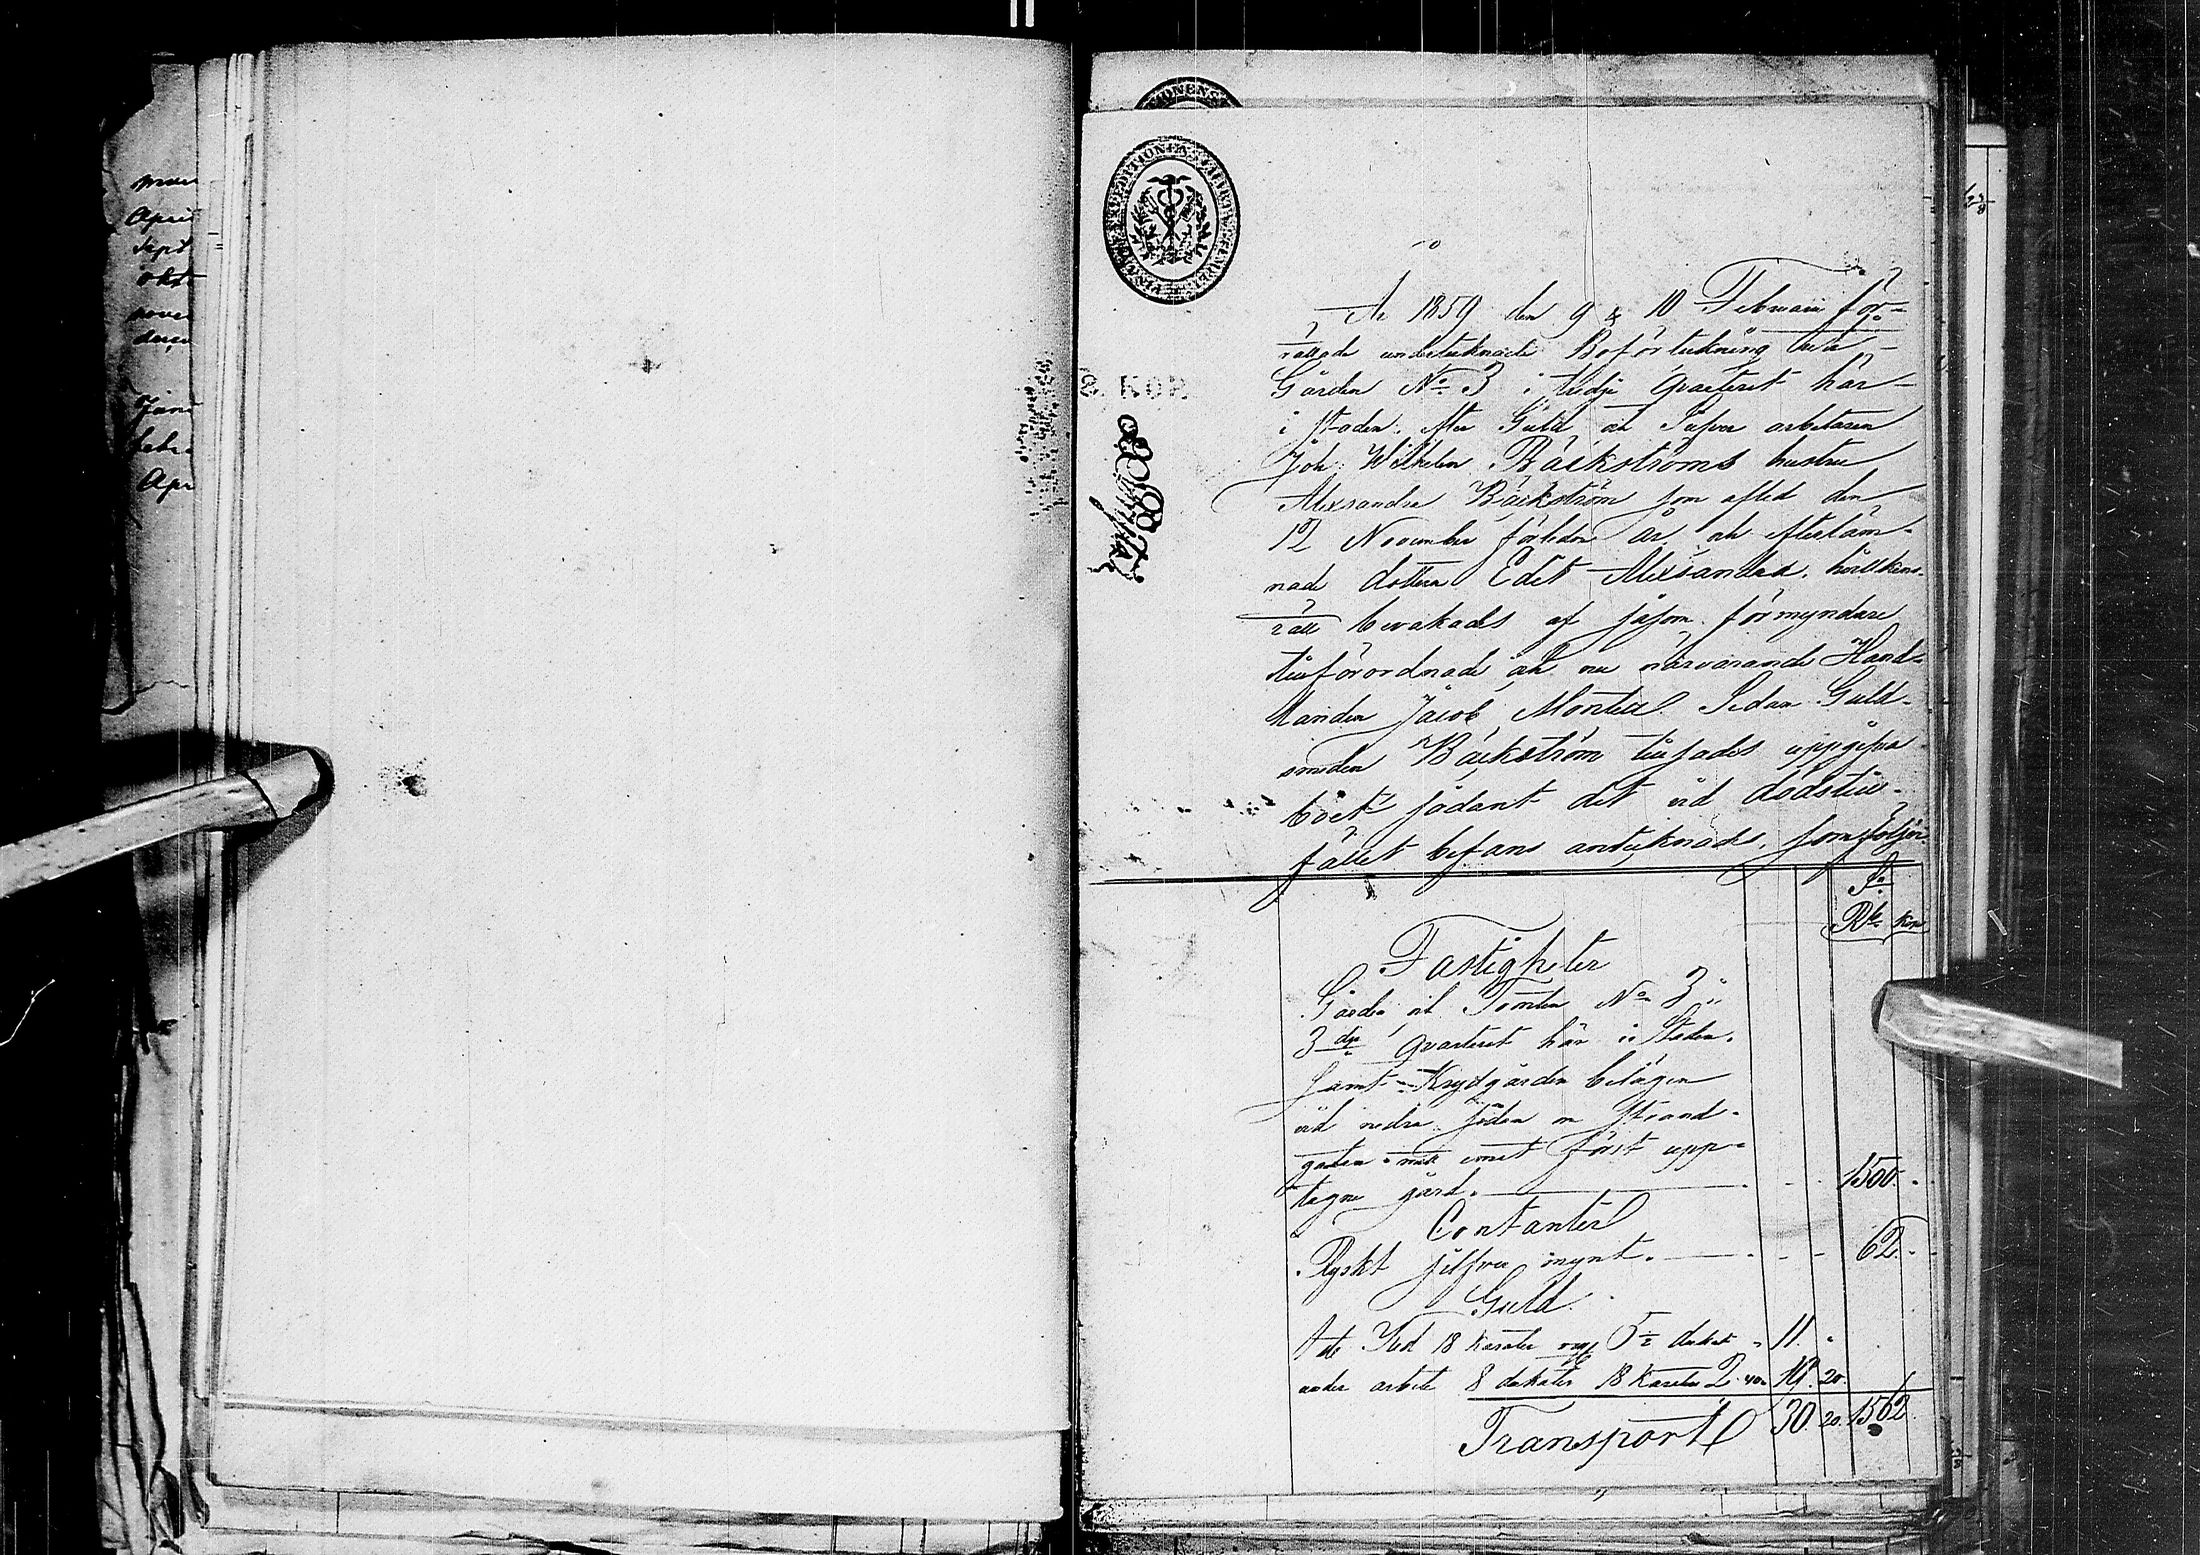 År 1859 den 9 & 10 Februari för-
rättade undertecknade Boförteckning uti
Gården No 3 i tredje Qvarteret här-
i staden, efter Guld och Silfver arbetaren
Joh: Wilhelm Bäckströms hustru
Alexsandra Bäckström som afled den
12 November förledne år, och efterläm-
nade dottern Edit Alexsandra, hvilkens
rätt bevakades af såsom förmyndare
tillförordnade och nu närvarande Hand-
landen Jacob Montell. Sedan Guld-
smeden Bäckström tillsades uppgifva
boet sådant det vid dödstill-
fället befans antecknades, som följer
Sr
Rbl kop
8 KOP.
Fastigheter
Gården och Tomten No 3 i
3dje Qvarteret här i Staden,
samt Krydgården belägen
vid nedra södra Strand-
gatan emot först upp-
tagne gård. 1500. -
Contanter
Ryskt silfver mynt. 62. -
Guld
18 karater 5½ dukat 11. -
arbete 8 dukater 18 karater 2 40 19. 20.
Transport 30. 20. 1562
Apri
Sept
okt
nove
Janu
febr
Apr